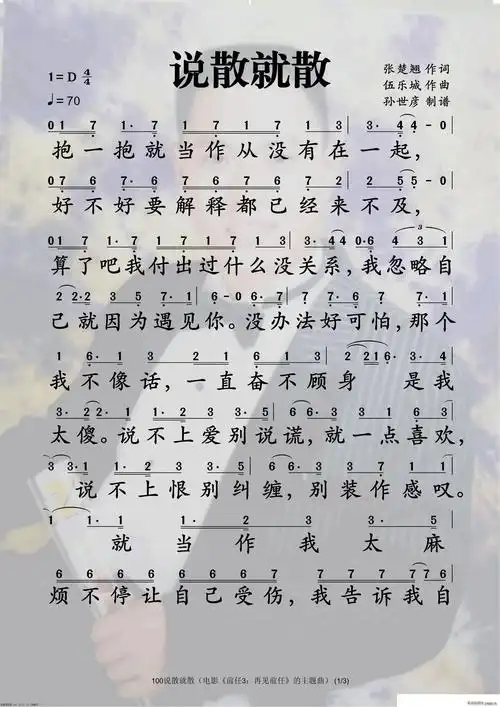 说散就散
1=D 4/4
♩=70
张楚翘 作词
伍乐城 作曲
孙世彦 制谱
01 7 1· 7 1 7 1 7 1 3 3· 44-0
抱一抱就当作从没有在一起，
07 6 7· 6 7 6 7 6 7 2 2 55-0
好不好要解释都已经来不及，
01 7 1· 7 1 7 1 1 3 3·44 0·6 4 3 1
算了吧我付出过什么没关系，我忽略自
2 2·2 3 5 7· 1 6-0 6·7 7· 1 2 7· 1
己就因为遇见你。没办法好可怕，那个
1 6· 1 3 2 1 6 1 2 216· 3· 4
我不像话，一直奋不顾身 是我
3· 2 2· 1 1· 2 3 3· 5 6 6· 3 1 6 3·
太傻。说不上爱别说谎，就一点喜欢，
3 3·1 1· 2 3 3· 5 6 6· 3 3 7 1 1
说不上恨别纠缠，别装作感叹。
1 1· 1 1· 2 3 3· 5
就当作我太麻
6 6 6 6 6 6 6 7 7 7 7 7 6
烦不停让自己受伤，我告诉我自
100说散就散（电影《前任3：再见前任》的主题曲）(1/3)